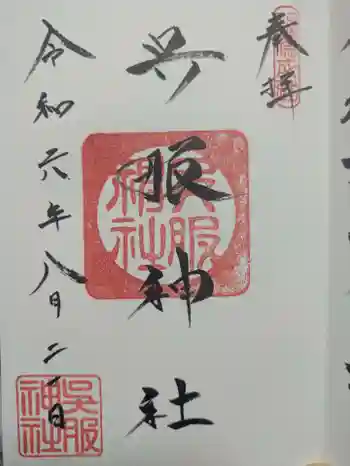 奉拝
呉服神社
呉服神社
令和六年八月二日
呉服神社